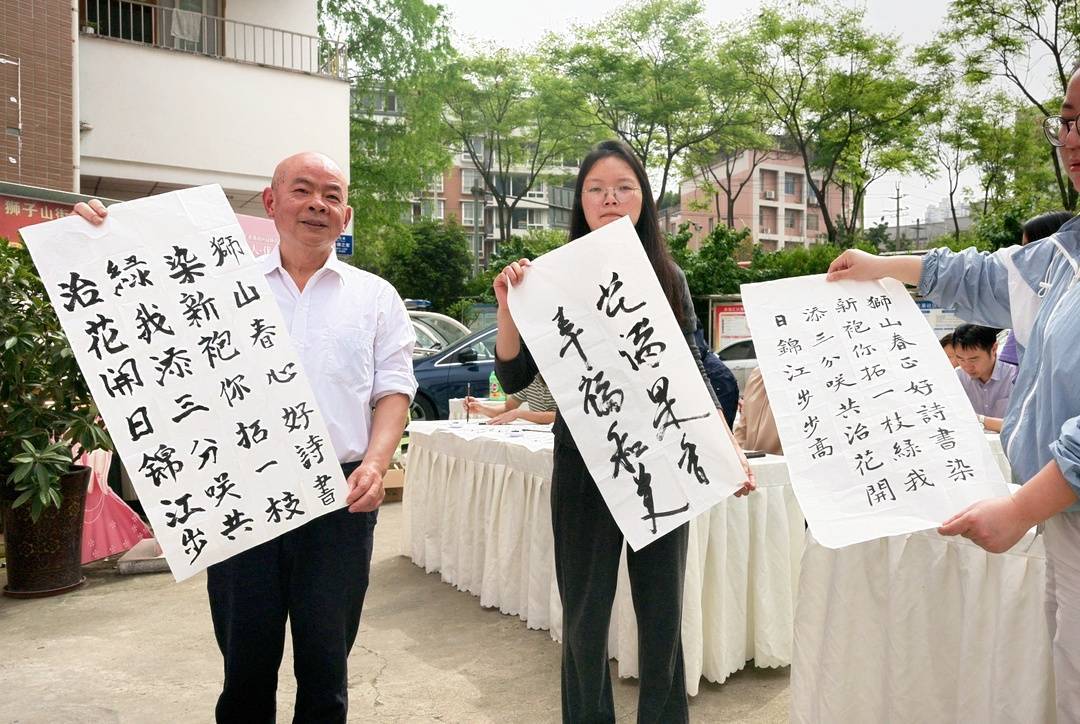 狮子山街
獅山春正好詩書
染新袍你拓一枝
綠我添三分咲共
治花開日錦江步
花满果香
幸福和美
獅山春正好詩書染
新袍你拓一枝綠我
添三分咲共治花開
日錦江步步高